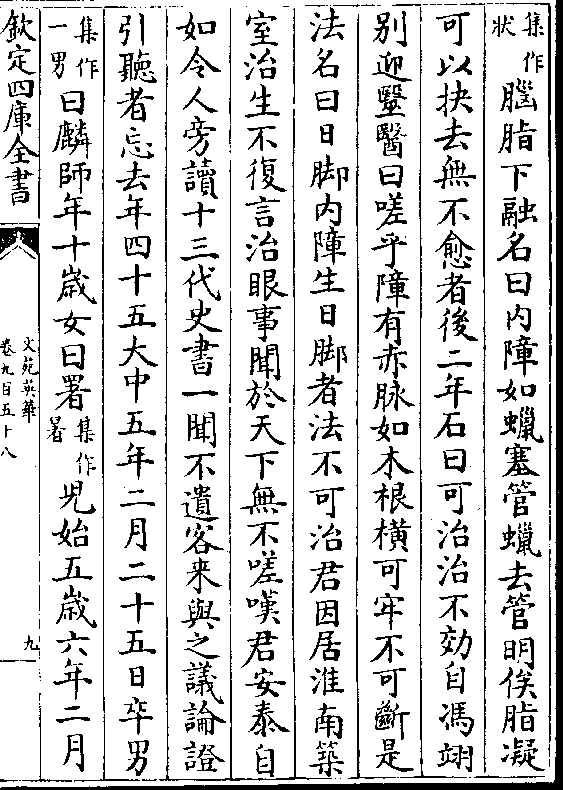 集作狀腦脂下融名曰内障如蠟塞管蠟去管明俟脂凝
可以抉去無不愈者後二年石曰可治治不効自馮翊
别迎毉醫曰嗟乎障有赤脉如木根橫可牢不可斷是
法名曰日脚内障生日脚者法不可治君因居淮南築
室治生不復言治眼事聞於天下無不嗟嘆君安泰自
如令人旁讀十三代史書一聞不遺客来與之議論證
引聽者忘去年四十五大中五年二月二十五日卒男
集作一男曰麟師年十歲女曰署集作暑児始五歲六年二月
欽定四庫全書
文苑英華
卷九百五十八
九